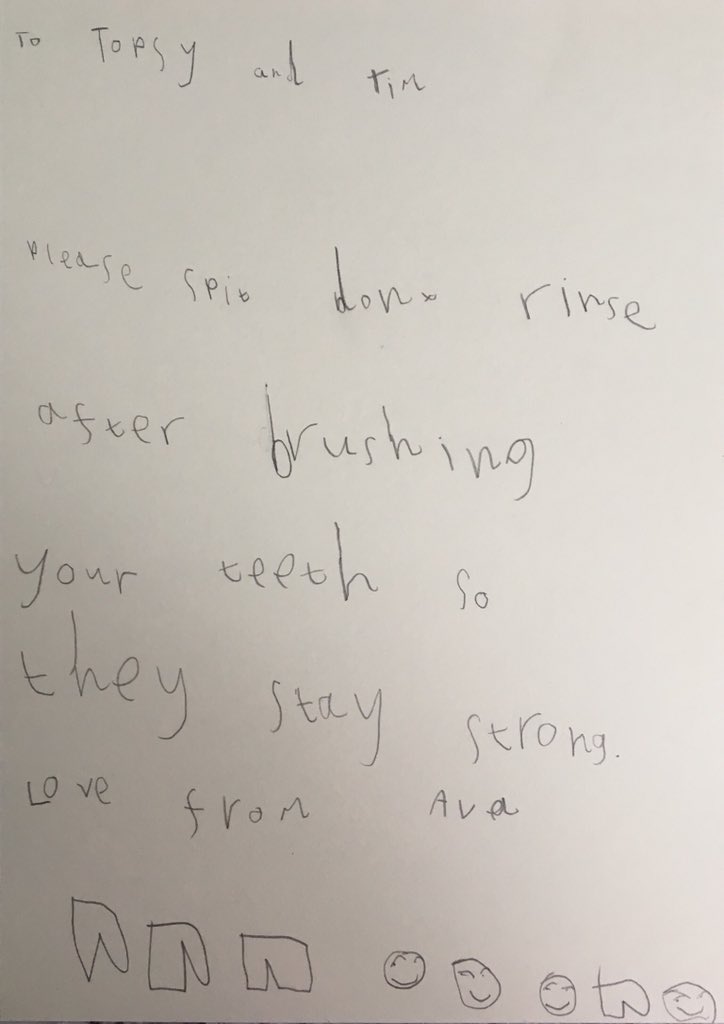 To Topsy and Tim
Please spit dont rinse
after brushing
your teeth so
they stay strong.
Love from Ava